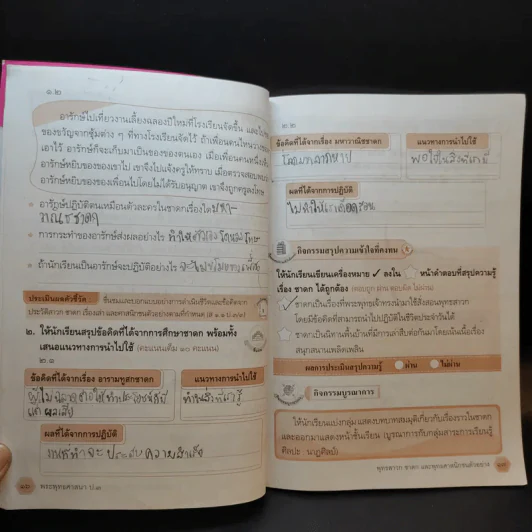 ๑.๒
อารักษ์ไปเที่ยวงานเลี้ยงฉลองปีใหม่ที่โรงเรียนจัดขึ้น และไป
ของขวัญจากซุ้มต่าง ๆ ที่ทางโรงเรียนจัดไว้ ถ้าเพื่อนคนไหนวาง
เอาไว้ อารักษ์ก็จะเก็บมาเป็นของของตนเอง เมื่อเพื่อนคนหนึ่ง
อารักษ์หยิบของของเขาไป เขาจึงไปแจ้งครูให้ทราบ เมื่อตรวจสอบพบ
อารักษ์หยิบของของเพื่อนไปโดยไม่ได้รับอนุญาต เขาจึงถูกครูลงโทษ
อารักษ์ปฏิบัติตนเหมือนตัวละครในชาดกเรื่องใด มหา-
วาณิชชาดก
การกระทำของอารักษ์ส่งผลอย่างไร ทำให้ตัวเองโดนลงโทษ
ถ้านักเรียนเป็นอารักษ์จะปฏิบัติอย่างไร จะไม่ขโมยของเพื่อน
ประเมินผลตัวชี้วัด
ชื่นชมและบอกแบบอย่างการดำเนินชีวิตและข้อคิดจาก
ประวัติสาวก ชาดก เรื่องเล่า และศาสนิกชนตัวอย่างตามที่กำหนด (ส ๑.๑ ป.๓/๓)
๒. ให้นักเรียนสรุปข้อคิดที่ได้จากการศึกษาชาดก พร้อมทั้ง
เสนอแนวทางการนำไปใช้ (คะแนนเต็ม ๑๐ คะแนน)
๒.๑
ข้อคิดที่ได้จากเรื่อง อารามทูสกชาดก
แนวทางการนำไปใช้
ผลที่ได้จากการปฏิบัติ
พระพุทธศาสนา ป.๓
๒.๒
ข้อคิดที่ได้จากเรื่อง มหาวาณิชชาดก
แนวทางการนำไปใช้
โลภมากลาภหาย
พอใจในสิ่งที่เรามี
ผลที่ได้จากการปฏิบัติ
ไม่ทำให้เราเดือดร้อน
กิจกรรมสรุปความเข้าใจที่คงทน
ให้นักเรียนเขียนเครื่องหมาย ✓ ลงใน ☆ หน้าคำตอบที่สรุปความรู้
เรื่อง ชาดก ได้ถูกต้อง (ตอบถูก ผ่าน ตอบผิด ไม่ผ่าน)
✓ ชาดกเป็นเรื่องที่พระพุทธเจ้าทรงนำมาใช้สั่งสอนพุทธสาวก
โดยมีข้อคิดที่สามารถนำไปปฏิบัติในชีวิตประจำวันได้
ชาดกเป็นนิทานพื้นบ้านที่มีการเล่าสืบต่อกันมาโดยเน้นเนื้อเรื่อง
สนุกสนานเพลิดเพลิน
ผลการประเมินสรุปความรู้ ผ่าน ไม่ผ่าน
กิจกรรมบูรณาการ
ให้นักเรียนแบ่งกลุ่ม แสดงบทบาทสมมุติเกี่ยวกับเรื่องราวในชาดก
และออกมาแสดงหน้าชั้นเรียน (บูรณาการกับกลุ่มสาระการเรียนรู้
ศิลปะ : นาฏศิลป์)
พุทธสาวก ชาดก และพุทธศาสนิกชนตัวอย่าง